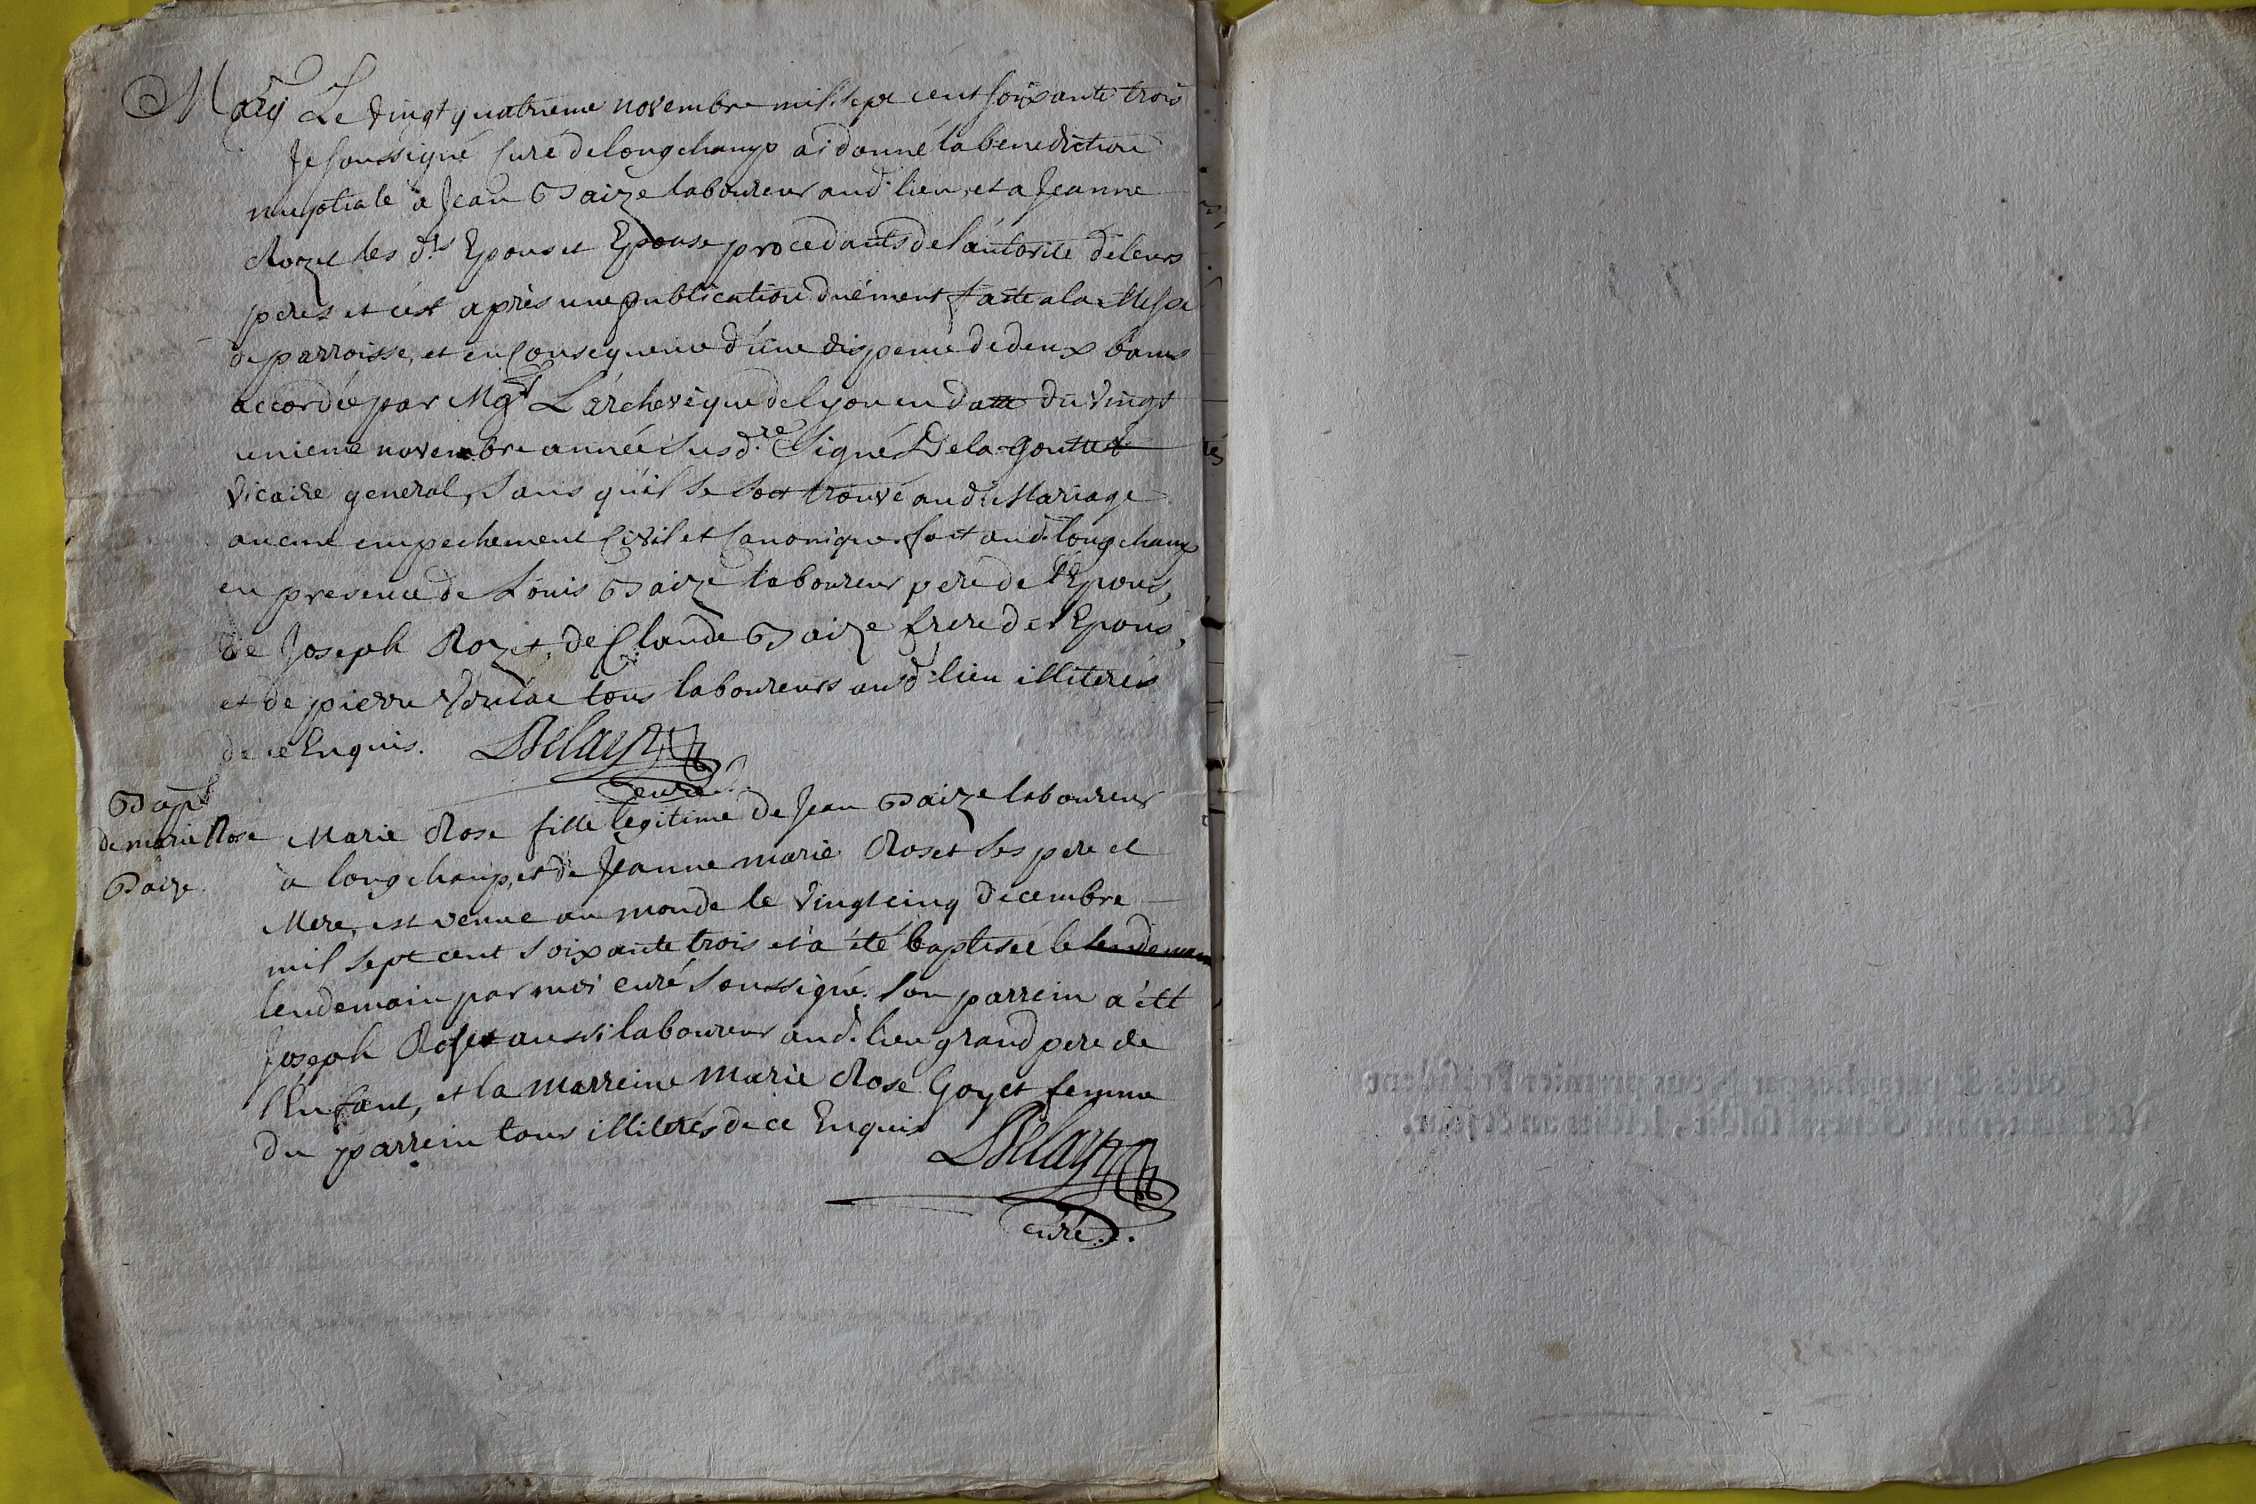 Mari Le vingt quatrieme novembre mil sept cent soixante trois
Je soussigné Curé de longchamp ai donné la benediction
nuptiale a Jean Baize laboureur aud. lieu, et a Jeanne
Rozet les d.ts Epous et Epouse procedants de l'autorité de leurs
peres et c'est après une publication duément faite a la Messe
de parroisse, et en Consequence d'une dispense de deux bans
accordée par Mgr L'archevêque de Lyon en datte du vingt
unieme novembre année susd.te Signé De la goutte
Vicaire general, sans qu'il se soit trouvé aud. Mariage
aucun empechement Civil et Canonique. fait aud. longchamp
en presence de Louis Baize laboureur pere de l'Epous,
de Joseph Rozet, de Claude Baize frere de l'Epous,
et de pierre tous laboureurs aud. lieu illiterés
de ce Enquis. Delay
curé
Bapt
de marie Rose
Baize.
Marie Rose fille legitime de Jean Baize laboureur
a longchamp, et de Jeanne marie Roset ses pere et
Mere, est venue au monde le vingt cinq decembre
mil sept cent soixante trois et a été baptisée le lendemain
lendemain par moi curé soussigné. son parrein a été
Joseph Roset aussi laboureur aud. lieu grand pere de
l'Enfant, et la marreine Marie Rose Goyet femme
du parrein tous illiterés de ce Enquis Delay
curé.